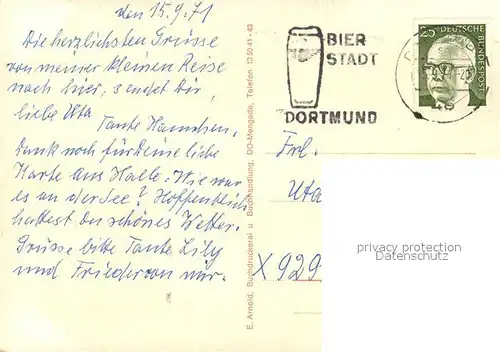 den 15.9.71
Die herzlichsten Grüsse
von meiner kleinen Reise
nach hier, sendet Dir
liebe Uta
Tante Hannchen,
Dank noch für Deine liebe
Karte aus Halle. Wie war
es an der See? Hoffentlich
hattest Du schönes Wetter.
Grüsse bitte Tante Lily
und Frieder von mir.
E. Arnold, Buchdruckerei u. Buchhandlung, DO-Mengede, Telefon 13 50 41 - 43
BIER
STADT
DORTMUND
25 DEUTSCHE
BUNDESPOST
46
Frl.
Uta
X 929
privacy protection
Datenschutz